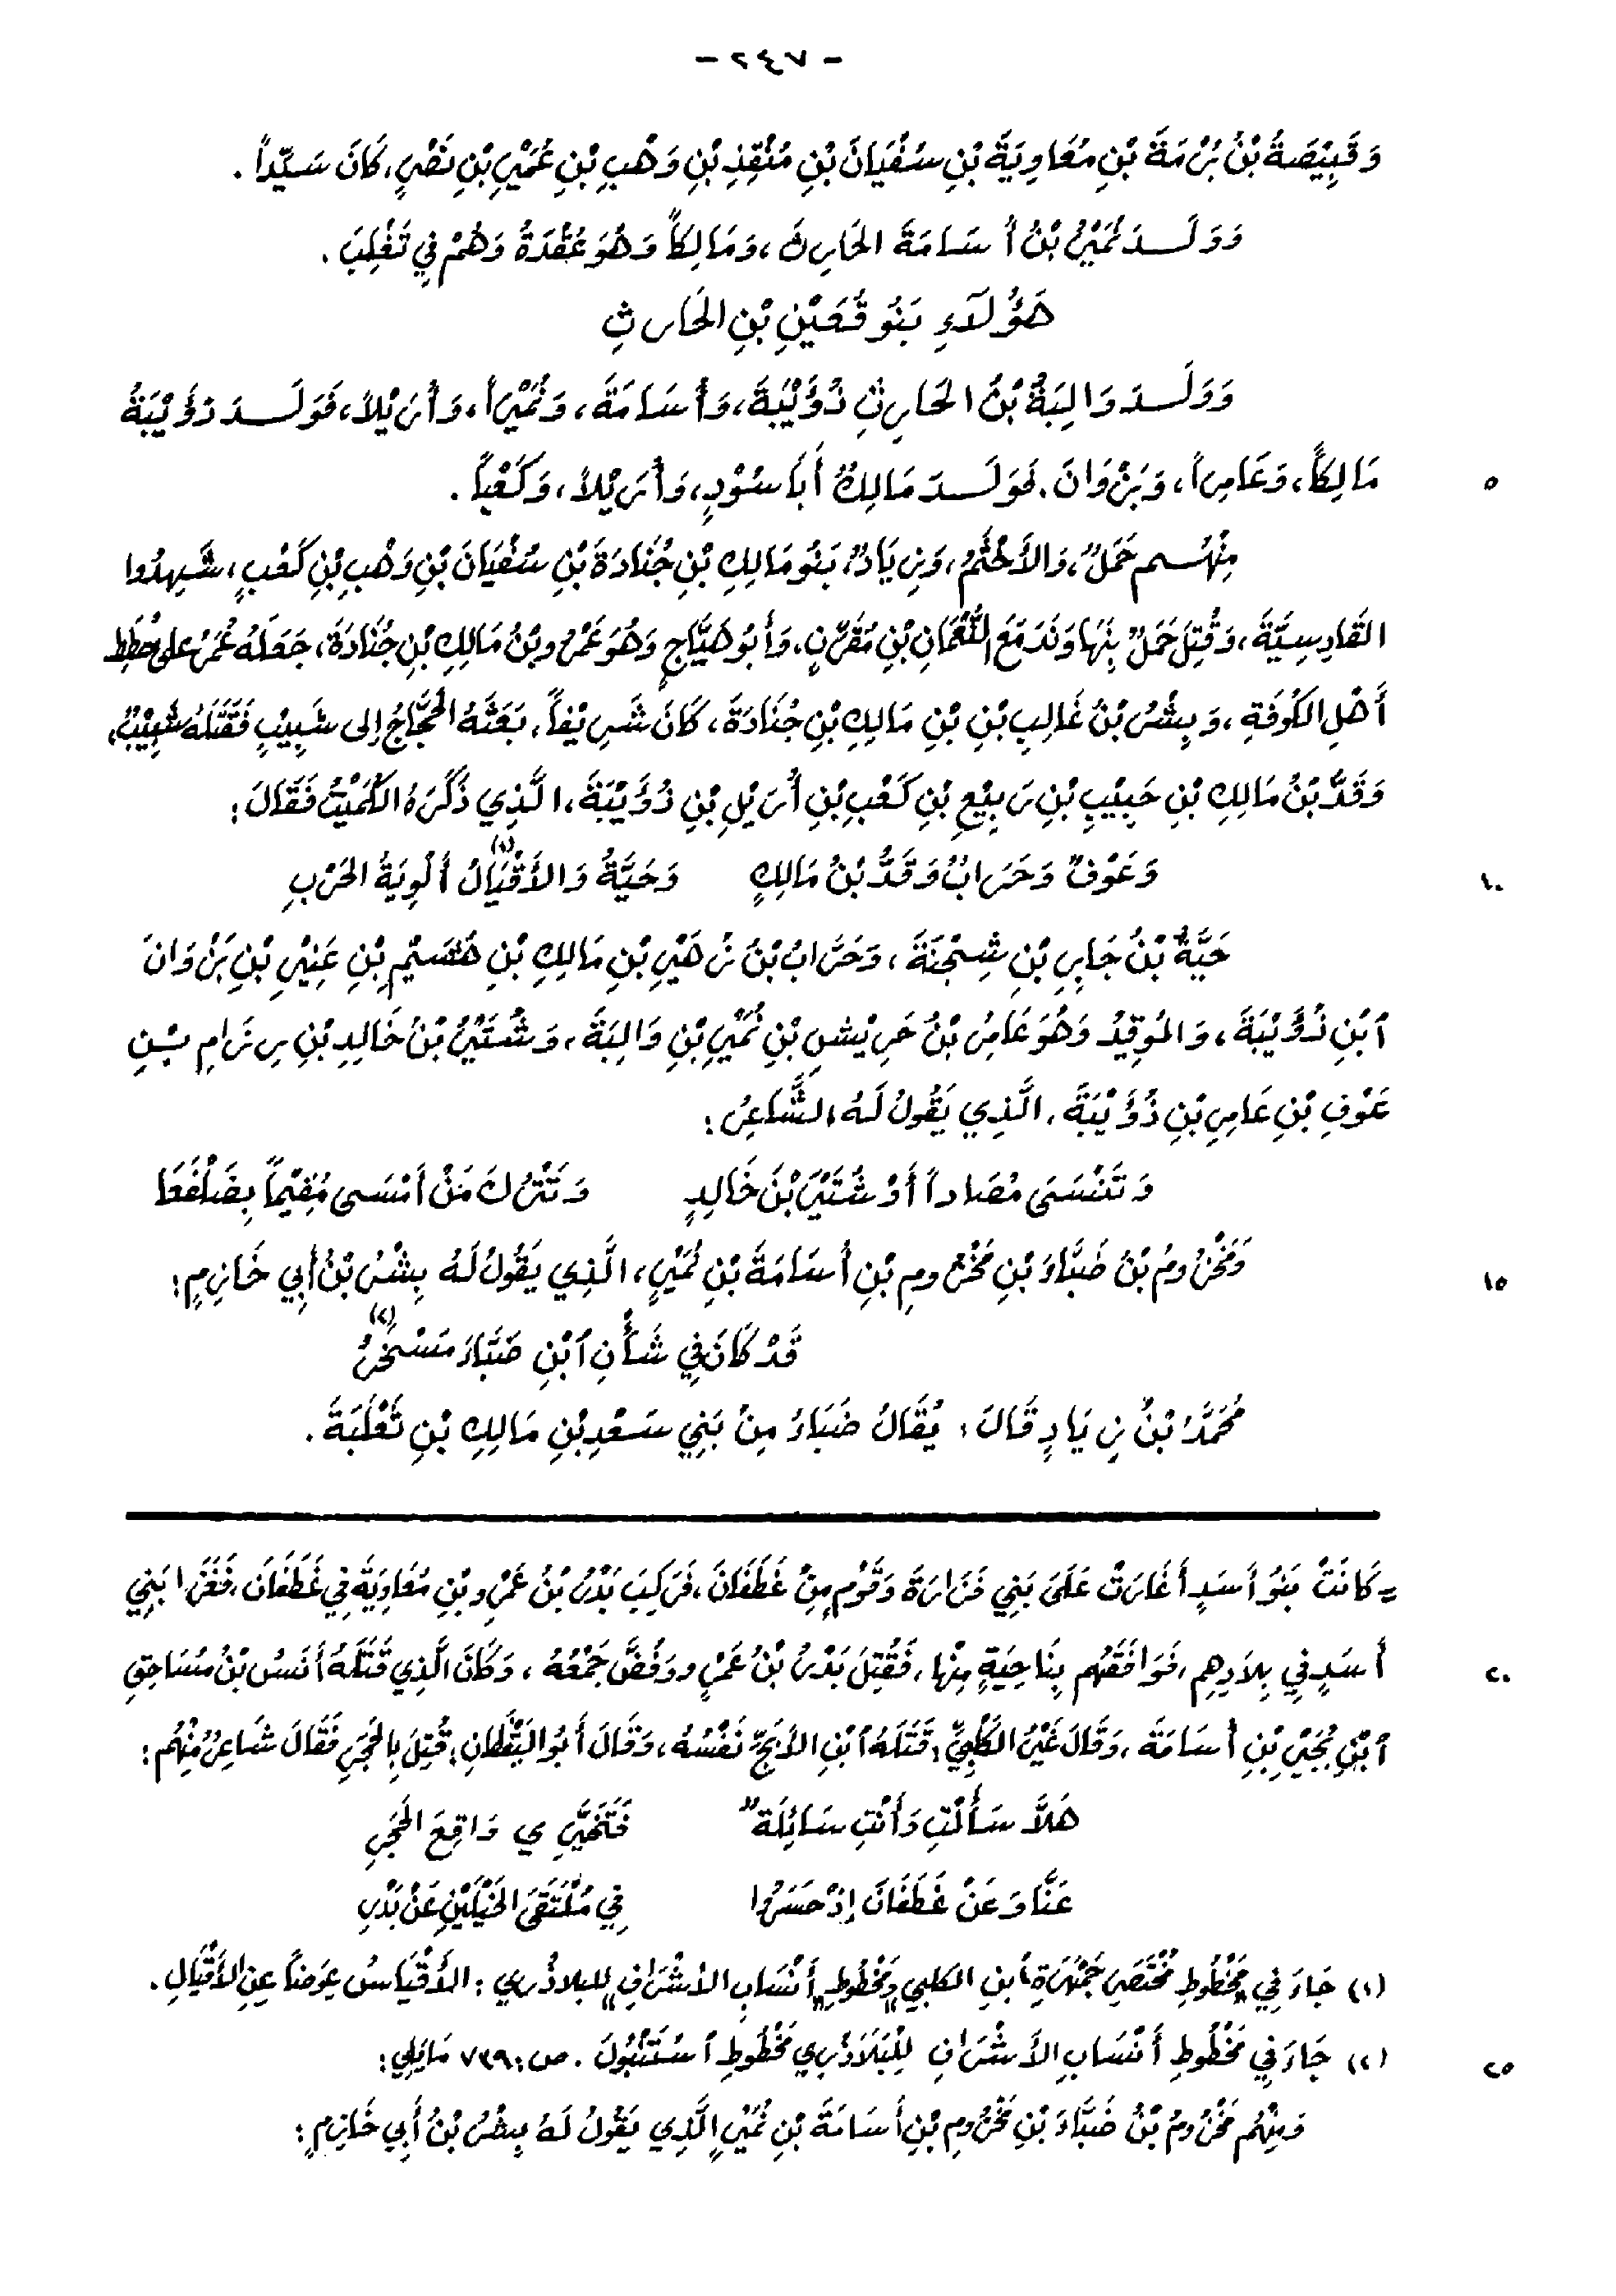 - ٧٤٢ -
وَقَبِيْصَةُ بْنُ بُرْمَةَ بْنِ مُعَاوِيَةَ بْنِ سُفْيَانَ بْنِ مُنْقِذِ بْنِ وَهْبِ بْنِ عُمَيْرِ بْنِ نَصْرٍ، كَانَ سَيِّداً .
وَوَلَـدَ نُمَيْرُ بْنُ أُسَامَةَ الحَارِثَ، وَمَالِكاً وَهُوَ عُقْدَةُ وَهُمْ فِي تَغْلِبَ .
هَؤُلَاءِ بَنُو قُعَيْنِ بْنِ الحَارِثِ
وَوَلَـدَ وَالِبَةُ بْنُ الحَارِثِ ذُؤَيْبَةَ، وَأُسَامَةَ، وَنُمَيْراً، وَأُرَيْلاً، فَوَلَـدَ ذُؤَيْبَةُ
مَالِكاً، وَعَامِراً، وَبَزْوَانَ. فَوَلَـدَ مَالِكٌ أَبَا سُوْدٍ، وَأُرَيْلاً، وَكَعْباً . ٥
مِنْهُـم حَمَلٌ، وَالأَخْثَمُ، وَزِيَادٌ، بَنُو مَالِكِ بْنِ جُنَادَةَ بْنِ سُفْيَانَ بْنِ وَهْبِ بْنِ كَعْبٍ، شَهِدُوا
القَادِسِيَّةَ، وَقُتِلَ حَمَلٌ بِنَهَاوَنَدَ مَعَ النُّعْمَانِ بْنِ مُقَرِّنٍ، وَأَبُو هَيَّاجٍ وَهُوَ عَمْرُو بْنُ مَالِكِ بْنِ جُنَادَةَ، جَعَلَهُ عُمَرُ على خِطَطِ
أَهْلِ الكُوفَةِ، وَبِشْرُ بْنُ غَالِبِ بْنِ بْنِ مَالِكِ بْنِ جُنَادَةَ، كَانَ شَرِيْفاً، بَعَثَهُ الحَجَّاجُ إلى شَبِيْبٍ فَقَتَلَهُ شَبِيْبٌ،
وَقَدُّ بْنُ مَالِكِ بْنِ حَبِيْبِ بْنِ رَبِيْعِ بْنِ كَعْبِ بْنِ أُرَيْلِ بْنِ ذُؤَيْبَةَ، الَّذِي ذَكَرَهُ الكُمَيْتُ فَقَالَ:
وَعَوْفٌ وَحَرَّابٌ وَقَدُّ بْنُ مَالِكٍ وَحَيَّةُ وَالأَقْيَالُ (١) أَلْوِيَةُ الحَرْبِ ١٠
حَيَّةُ بْنُ جَابِرِ بْنِ شِجْنَةَ، وَحَرَّابُ بْنُ زُهَيْرِ بْنِ مَالِكِ بْنِ هُسَيْمِ بْنِ عَنِيْرِ بْنِ بَزْوَانَ
ٱبْنِ ذُؤَيْبَةَ، وَالمُوقِدُ وَهُوَ عَامِرُ بْنُ حَرِيْشِ بْنِ نُمَيْرِ بْنِ وَالِبَةَ، وَشُتَيْرُ بْنُ خَالِدِ بْنِ رِزَامِ بْـنِ
عَوْفِ بْنِ عَامِرِ بْنِ ذُؤَيْبَةَ. الَّذِي يَقُولُ لَهُ الشَّاعِرُ:
وَتَنْسَى مُصَاداً أَوْ شُتَيْرَ بْنَ خَالِدٍ وَتَتْرُكَ مَنْ أَمْسَى مُقِيْماً بِضَلْفَعَا
وَمَخْزُومُ بْنُ ضَبَّاءَ بْنِ مَخْزُومِ بْنِ أُسَامَةَ بْنِ نُمَيْرٍ، الَّذِي يَقُولُ لَهُ بِشْرُ بْنُ أَبِي خَازِمٍ: ١٥
قَدْ كَانَ فِي شَأْنِ ٱبْنِ ضَبَّاءَ مَسْخَرُ (٢)
مُحَمَّدُ بْنُ زِيَادٍ قَالَ: يُقَالُ ضَبَاءُ مِنْ بَنِي سَعْدِ بْنِ مَالِكِ بْنِ ثَعْلَبَةَ .
= كَانَتْ بَنُو أَسَدٍ أَغَارَتْ عَلَى بَنِي فَزَارَةَ وَقَوْمٍ مِنْ غَطَفَانَ، فَرَكِبَ بَدْرُ بْنُ عَمْرِو بْنِ مُعَاوِيَةَ فِي غَطَفَانَ، فَغَزَا بَنِي
أَسَدٍ فِي بِلَادِهِم، فَوَافَقَهُم بِنَاحِيَةٍ مِنْها، فَقُتِلَ بَدْرُ بْنُ عَمْرٍو وَفُضَّ جَمْعُهُ، وَكَانَ الَّذِي قَتَلَهُ أَنَسُ بْنُ مُسَاحِقِ ٢٠
ٱبْنِ بُجَيْرِ بْنِ أُسَامَةَ، وَقَالَ غَيْرُ الكَلْبِيِّ: قَتَلَهُ ٱبْنِ الأَبَحِّ نَفْسُهُ، وَقَالَ أَبُو اليَقْظَانِ: قُتِلَ بِالحَجَرِ فَقَالَ شَاعِرٌ مِنْهُم:
هَلَّا سَأَلْتِ وَأَنْتِ سَائِلَةٌ فَتَخَيَّرِي وَاقِعَ الحَجَرِ
عَنَّا وَعَنْ غَطَفَانَ إِذْ حَسَرُوا فِي مُلْتَقَى الخَيْلَيْنِ عَنْ بَدْرِ
(١) جَاءَ فِي مَخْطُوطِ مُخْتَصَرِ جَمْهَرَةِ ٱبنِ الكلبي وَمَخْطُوطِ "أَنْسَابِ الأشْرَافِ" للبلاذُري: الأَقْيَاسُ عِوَضاً عِنِ الأَقْيَالِ .
(٢) جَاءَ فِي مَخْطُوطِ أَنْسَابِ الأَشْرَافِ لِلْبَلَاذُرِي مَخْطُوطِ ٱسْتَنْبُولَ . ص: ٧٣٩ مَايَلِي: ٢٥
وَمِنْهُم مَخْزُومُ بْنُ ضَبَّاءَ بْنِ مَخْزُومِ بْنِ أُسَامَةَ بْنِ نُمَيْرٍ الَّذِي يَقُولُ لَهُ بِشْرُ بْنُ أَبي خَازِمٍ: